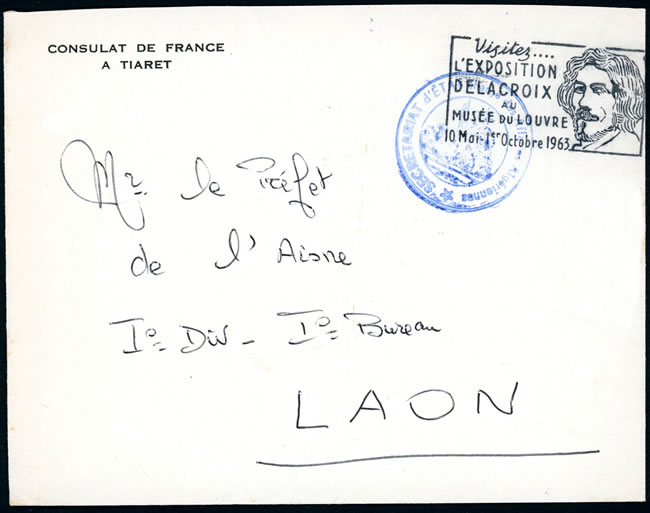 CONSULAT DE FRANCE
A TIARET
Visitez....
L'EXPOSITION
DELACROIX
AU
MUSÉE DU LOUVRE
10 Mai-1er Octobre 1963
SECRÉTARIAT D'ÉT Algériennes
Mr. le Préfet
de l'Aisne
Iº Div - Iº Bureau
LAON